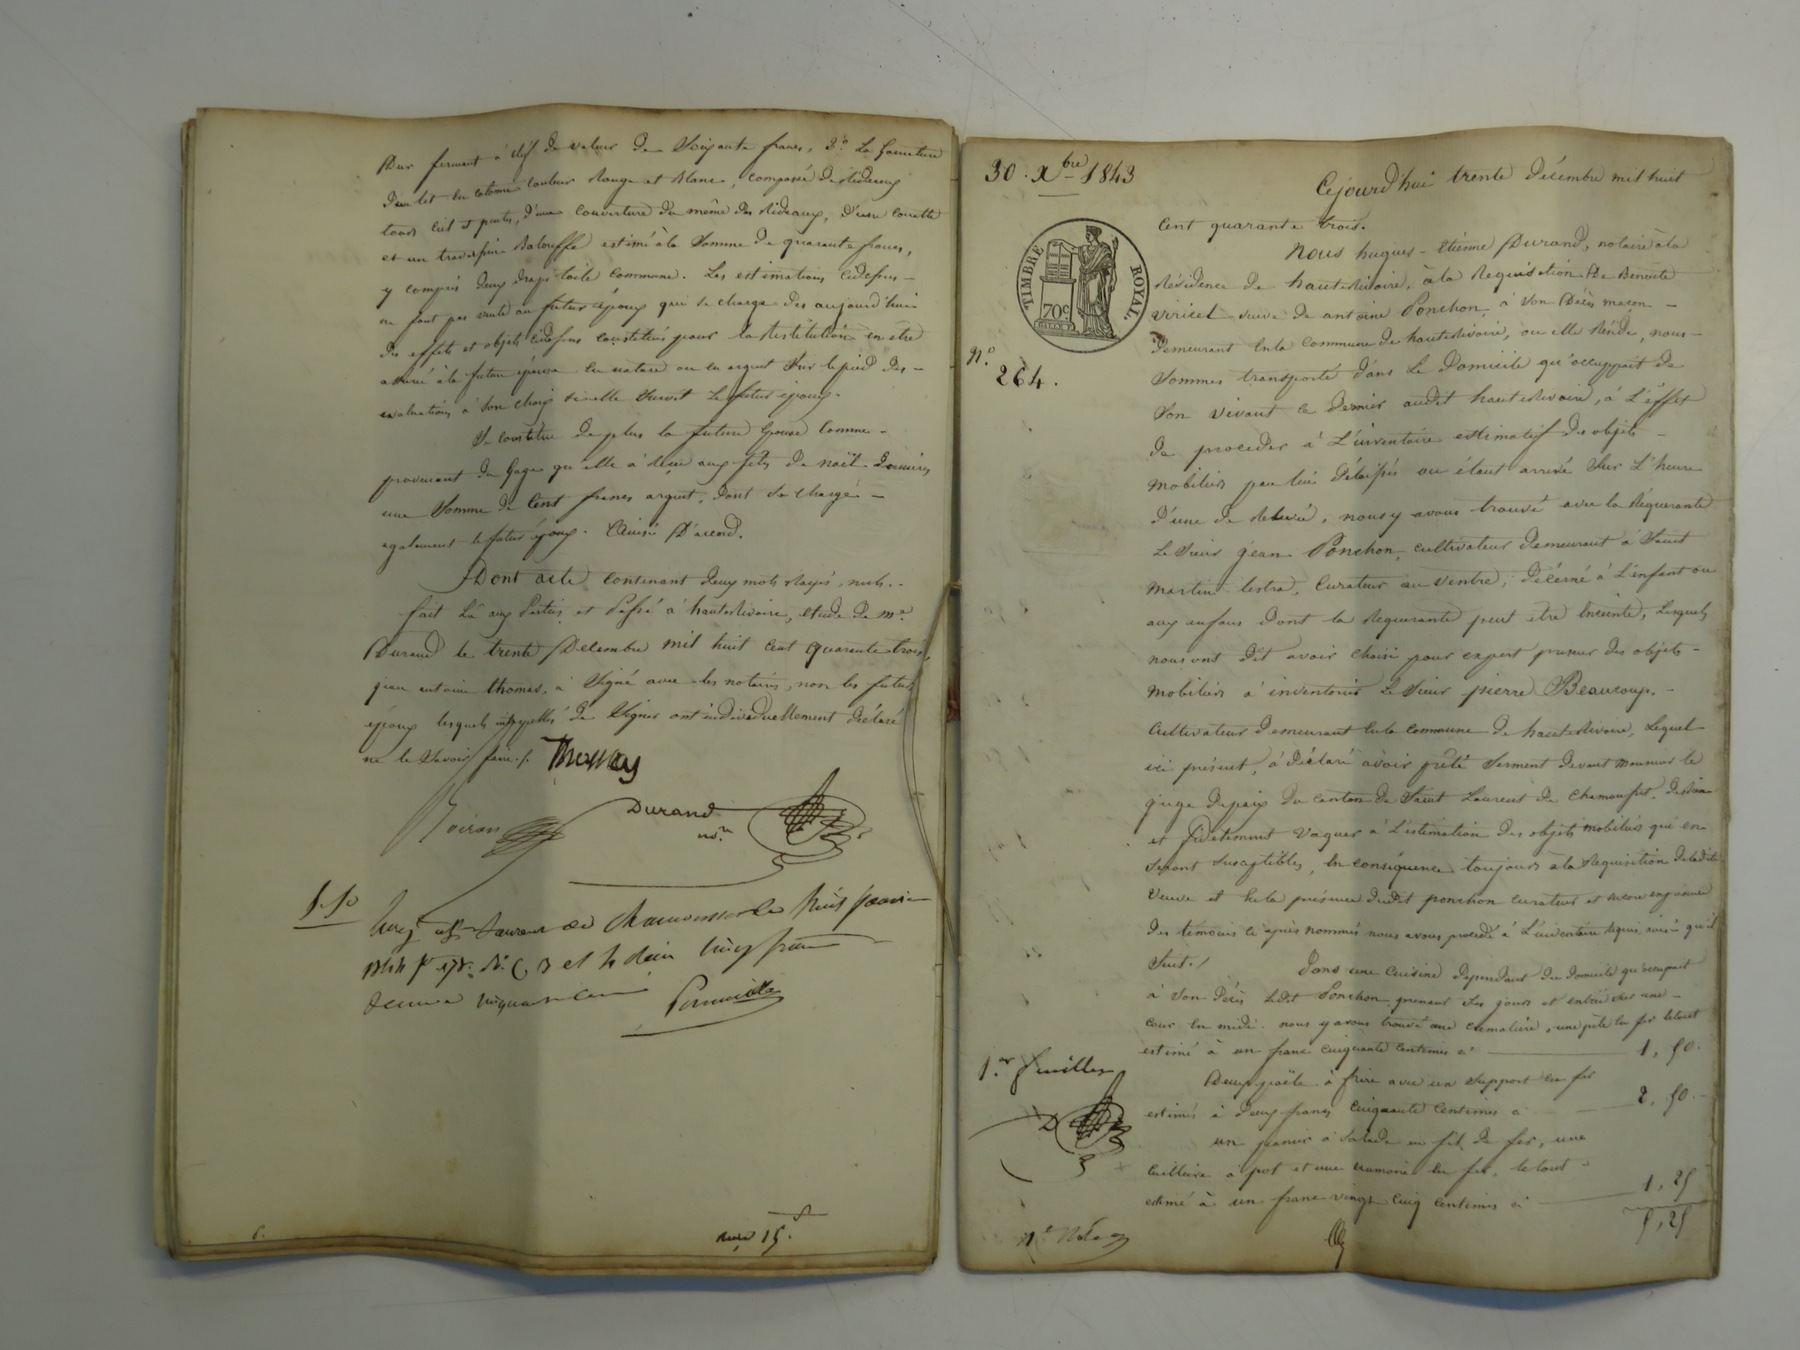 Dur fermant à clef de valeur de Soixante francs, 3.° La garniture
d'un lit en cotonne couleur Rouge et Blanc, composée de Rideaux
tours, Ciel et pentes, d'une couverture du même des Rideaux, d'une couette
et un traversin Balouffe estimé à la Somme de quarante francs,
y compris deux draps toile commune. Les estimations cidessus
ne font pas vente au futur époux qui se charge dès aujourd'hui
des effets et objets cidessus constitués pour la Restitution en être
assuré à la future épouse en nature ou en argent Sur le pied des
evaluations à Son choix si elle Survit le futur époux.
Se constitue de plus la future Epouse Comme
provenant de Gages qu'elle a reçue aux fêtes de noël dernières
une Somme de Cent francs argent, dont Se charge
egalement le futur époux. Ainsi D'accord.
Dont acte contenant deux mots rayés nuls.
fait Lû aux Parties et Passé à hauterivoire, etude de me
Durand le trente Decembre mil huit Cent quarante trois,
jean antoine thomas, à Signé avec les notaires, non les futurs
epoux lesquels interpellés de Signer ont individuellement déclaré
ne le Savoir faire./.
Thomas
Durand
nore
Enreg à St Laurent de Chamousset le huit Janvier
1844 fo 178 Ro C. 3 et 4 deux cinq francs
decime cinquante cent
6.
reçu 15.
30. Xbre 1843
TIMBRE ROYAL.
70c.
N.°
264.
Cejourd'hui trente décembre mil huit
Cent quarante trois.
Nous hugues-Etienne Durand, notaire à la
Résidence de hauterivoire, à la Requisition De Benoite
Viricel veuve de antoine Ponchon, à Son Décès maçon
demeurant En la commune de hauterivoire, ou elle Réside, nous
Sommes transporté dans Le Domicile qu'occuppait de
Son Vivant ce dernier audit hauterivoire, à L'effet
de proceder à L'inventaire estimatif des objets
Mobiliers par lui Délaissés ou étant arrivé Sur L'heure
d'une de Relevée, nous y avons trouvé avec la Requerante
Le Sieur jean Ponchon, cultivateur demeurant à Saint
Martin-lestra, Curateur au Ventre, décerné à L'enfant ou
aux enfans dont la Requerante peut être Enceinte, Lesquels
nous ont dit avoir choisi pour expert priseur des objets
Mobiliers à inventorier Le Sieur pierre Beaucoup,
Cultivateur demeurant En la commune de hauterivoire, Lequel
ici présent, à déclaré avoir prêté Serment devant Monsieur le
juge de paix du canton de Saint Laurent de Chamousset, de Bien
et fidelement vaquer à L'estimation des objets mobiliers qui en
Seront Susceptibles, En conséquence toujours à la Requisition de ladite
Veuve et En la présence dudit ponchon curateur et encore en présence
des temoins ci après nommés nous avons procédé à L'inventaire Requis, ainsi qu'il
Suit./
Dans une Cuisine dependant du domicile qu'occupait
à Son Décès Ledit Ponchon, prenant Ses jours et entrée Sur une
cour En midi. nous y avons trouvé une cremaliere, une pele En fer le tout
estimé à un franc cinquante Centimes ci 1, 50.
Deux poële à frire avec un support En fer
estimés à deux francs cinquante Centimes ci 2, 50.
un panier à Salade en fil de fer, une
Cuillière à pot et une En fer, le tout
estimé à un franc vingt cinq centimes ci 1, 25
5, 25
1.er feuillet
D